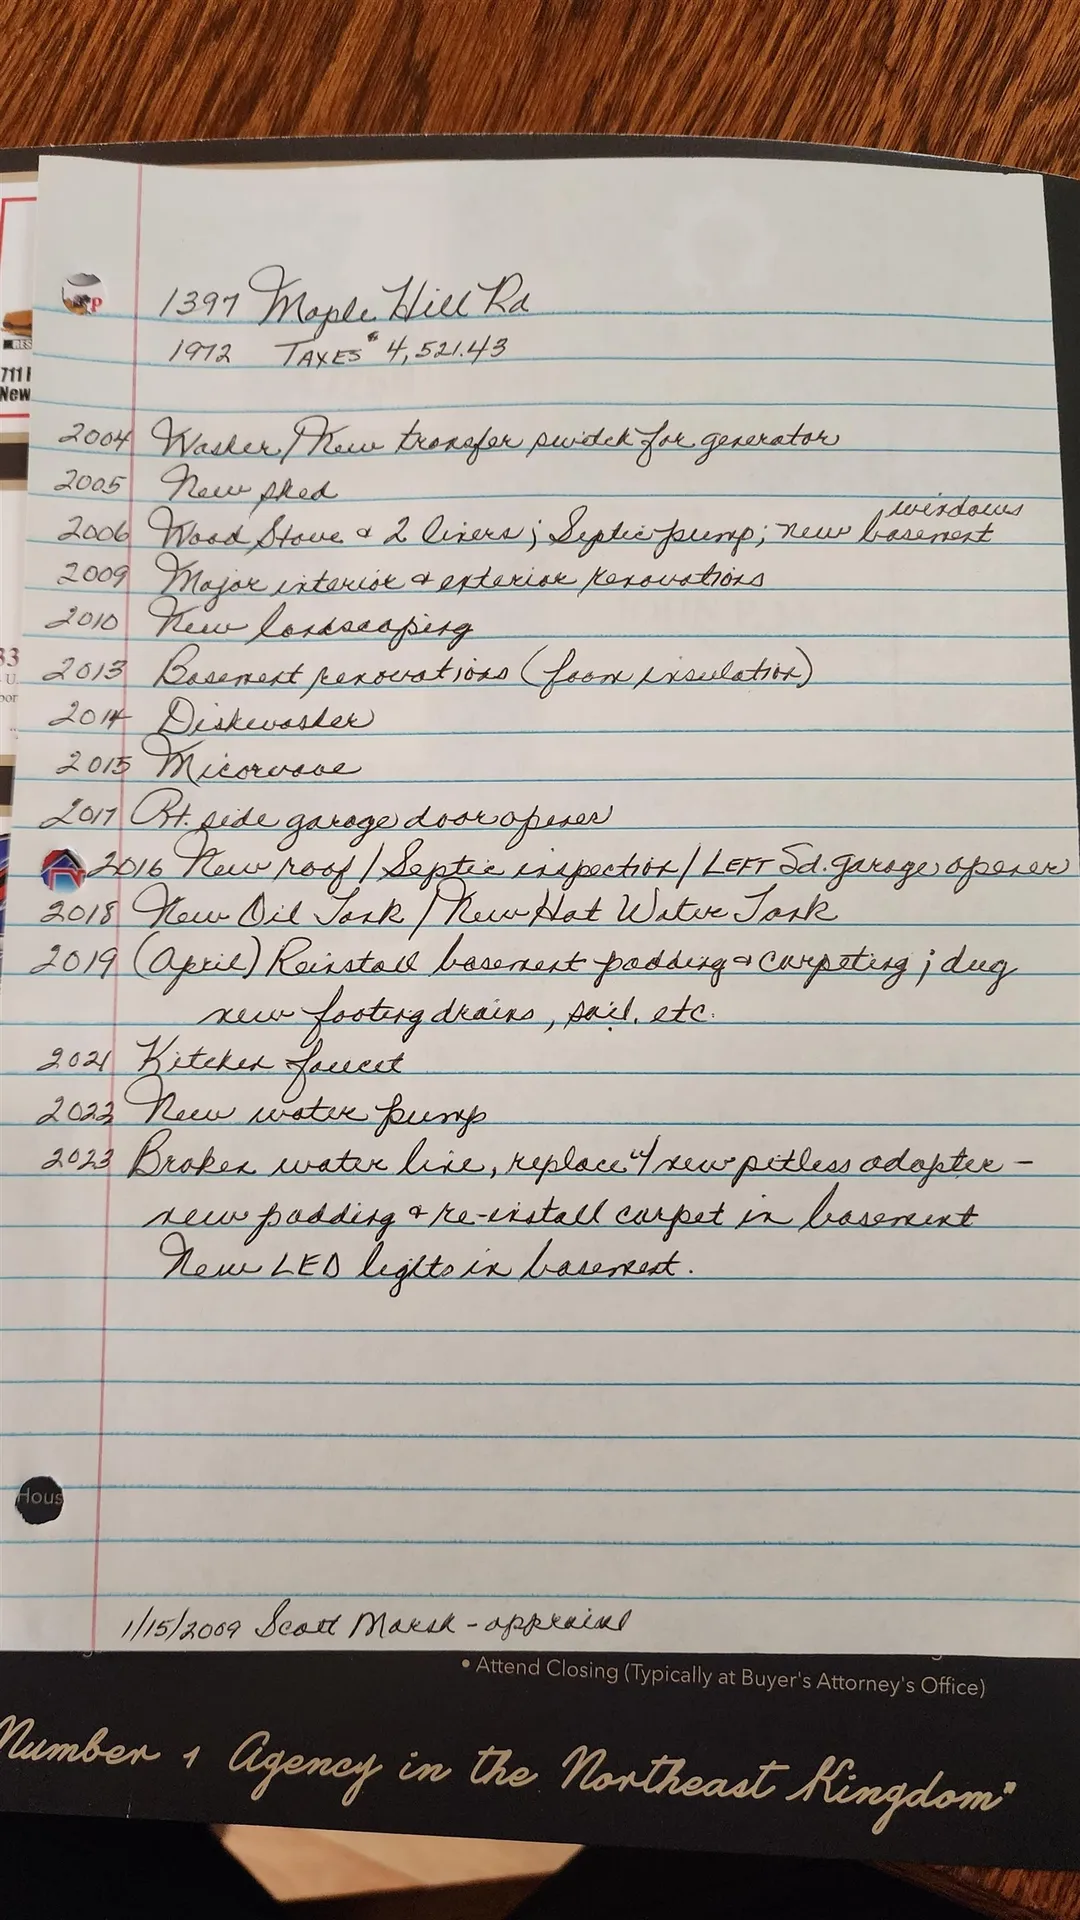 1397 Maple Hill Rd
1972 TAXES $ 4,521.43
2004 Washer/New transfer switch for generator
2005 New shed
windows
2006 Wood Stove & 2 liners; Septic pump; new basement
2009 Major interior & exterior renovations
2010 New landscaping
2013 Basement renovations (foam insulation)
2014 Dishwasher
2015 Micorwave
2017 Rt. side garage door opener
2016 New roof / Septic inspection / LEFT Sd. garage opener
2018 New Oil Tank / New Hot Water Tank
2019 (April) Reinstall basement padding & carpeting; dug
new footing drains, soil, etc.
2021 Kitchen faucet
2022 New water pump
2023 Broken water line, replace w/ new pitless adapter -
new padding & re-install carpet in basement
New LED lights in basement.
1/15/2009 Scott Marsh - appraisal
• Attend Closing (Typically at Buyer's Attorney's Office)
Number 1 Agency in the Northeast Kingdom"
711
New
33
Hous